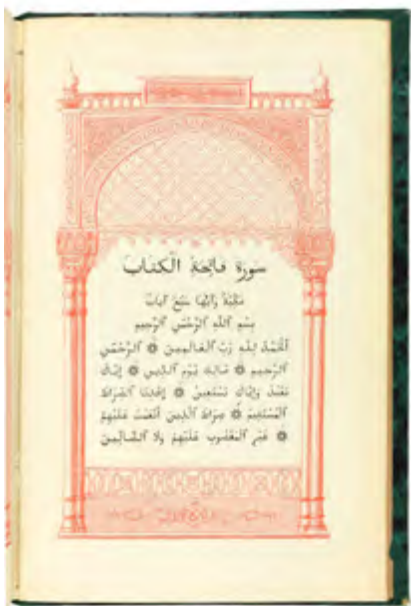 سورة فاتحة الكتاب
مكية وايها سبع ايات
بسم ٱلله ٱلرحمن ٱلرحيم
ٱلحمد لله رب ٱلعالمين ۞ ٱلرحمن
ٱلرحيم ۞ مالك يوم ٱلدين ۞ إياك
نعبد وإياك نستعين ۞ إهدنا ٱلصراط
ٱلمستقيم ۞ صراط ٱلذين أنعمت عليهم
۞ غير ٱلمغضوب عليهم ولا ٱلضالين